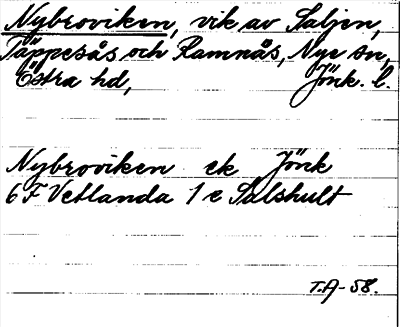 Nybroviken, vik av Saljen,
Täppesås och Ramnås, Nye sn,
Östra hd, Jönk. l.
Nybroviken ek Jönk
6 F Vetlanda 1 e Salshult
T.A-58.